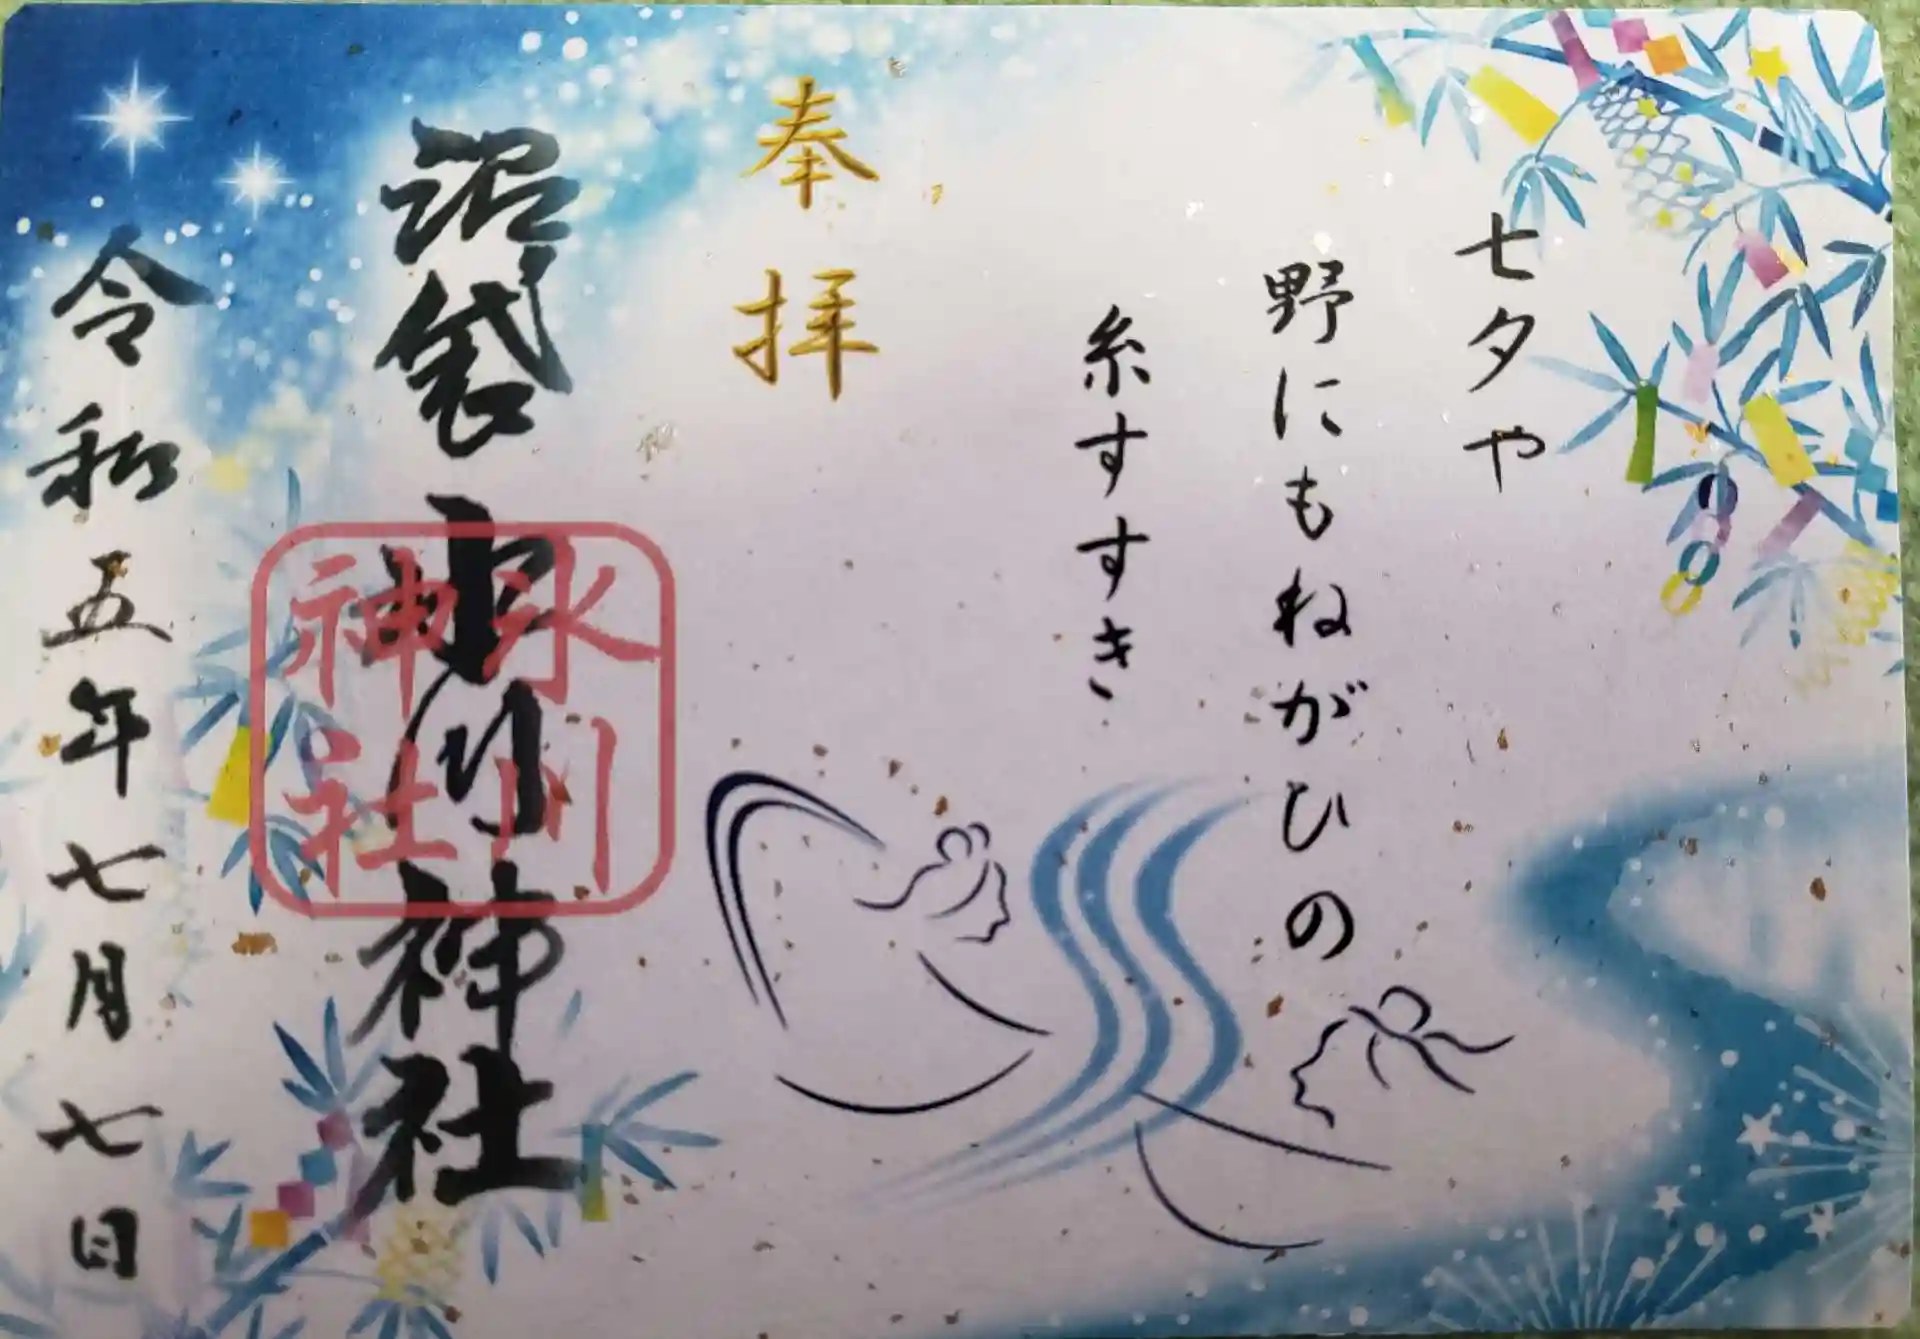 七夕や
野にもねがひの
糸すすき
奉拝
沼袋氷川神社
氷川
神社
令和五年七月七日